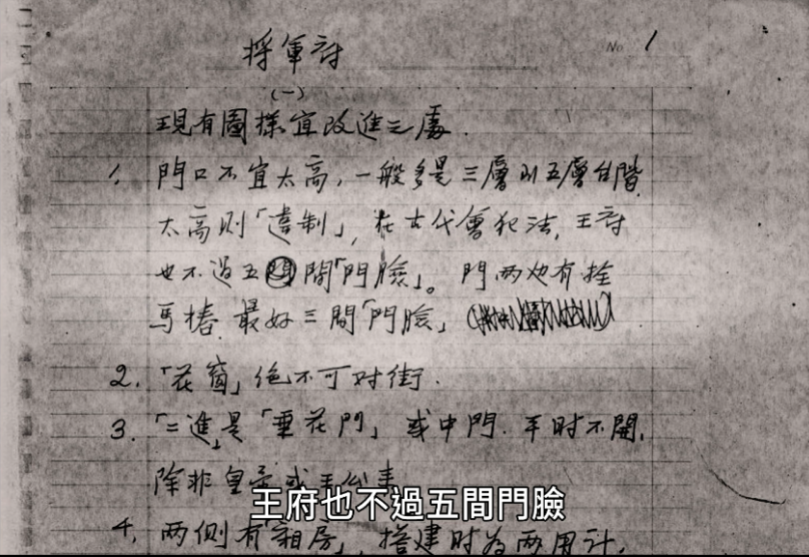 No 1
將軍府
(一)
現有圖樣宜改進之處.
1, 門口不宜太高,一般多是三層到五層台階
太高則「違制」,在古代會犯法,王府
也不過五間「門臉」。門兩边有拴
馬樁 最好三間「門臉」
2. 「花窗」絕不可对街.
3. 「二進」是「垂花門」或中門.平时不開,
除非皇帝或王公来
王府也不過五間門臉
4. 两側有「廂房」,搭建时为两用计,